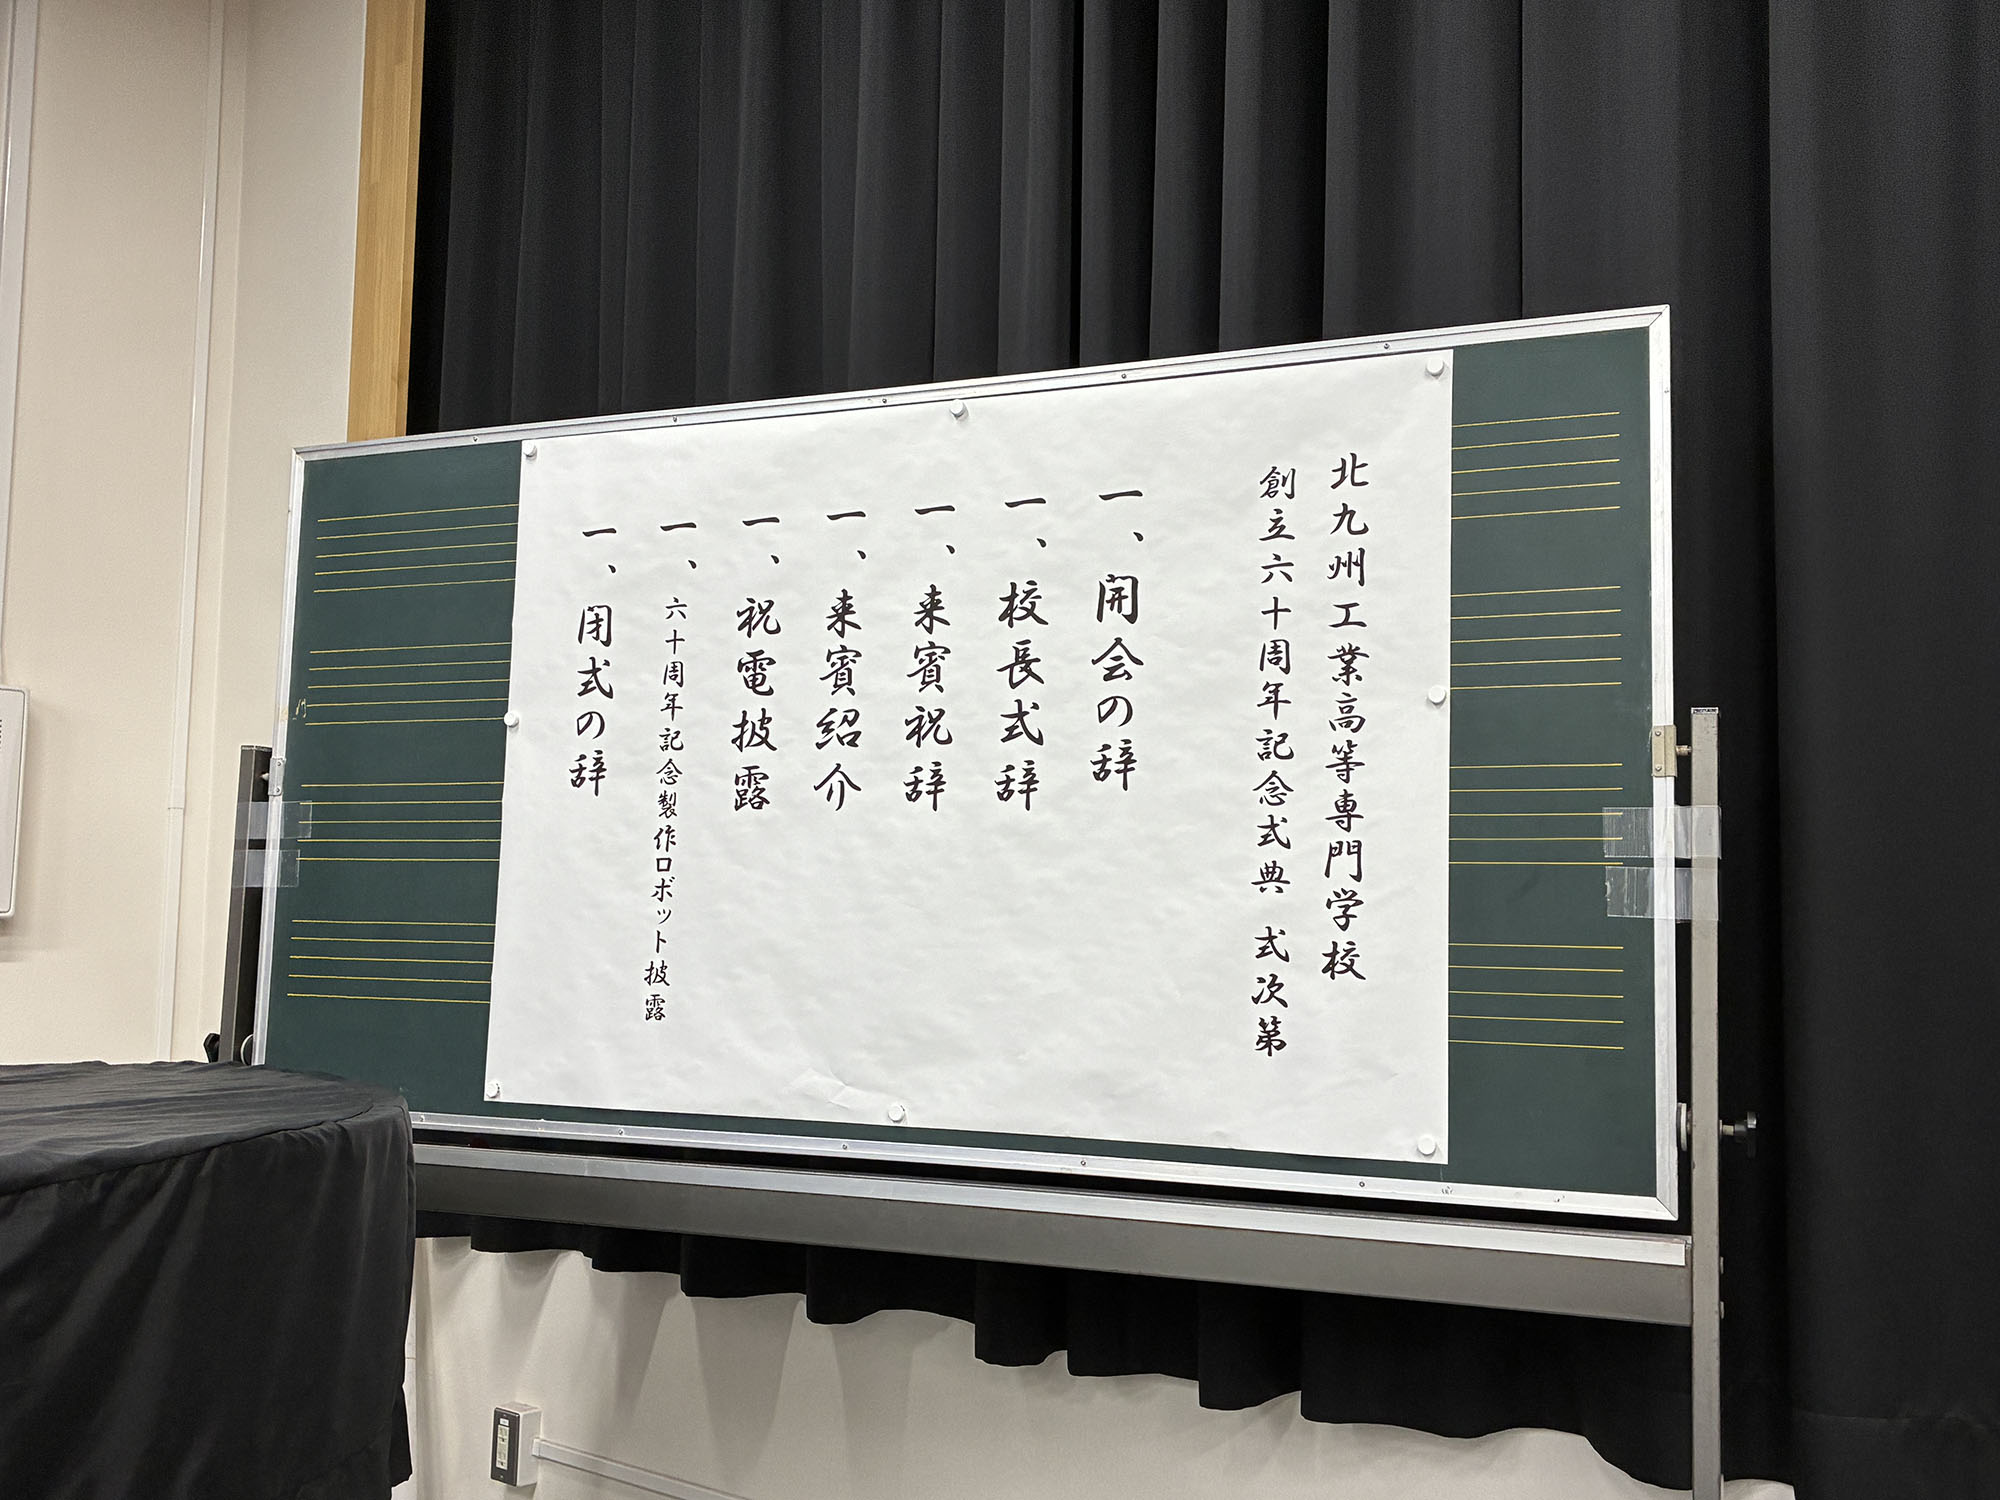 北九州工業高等専門学校
創立六十周年記念式典 式次第
一、開会の辞
一、校長式辞
一、来賓祝辞
一、来賓紹介
一、祝電披露
一、六十周年記念製作ロボット披露
一、閉式の辞